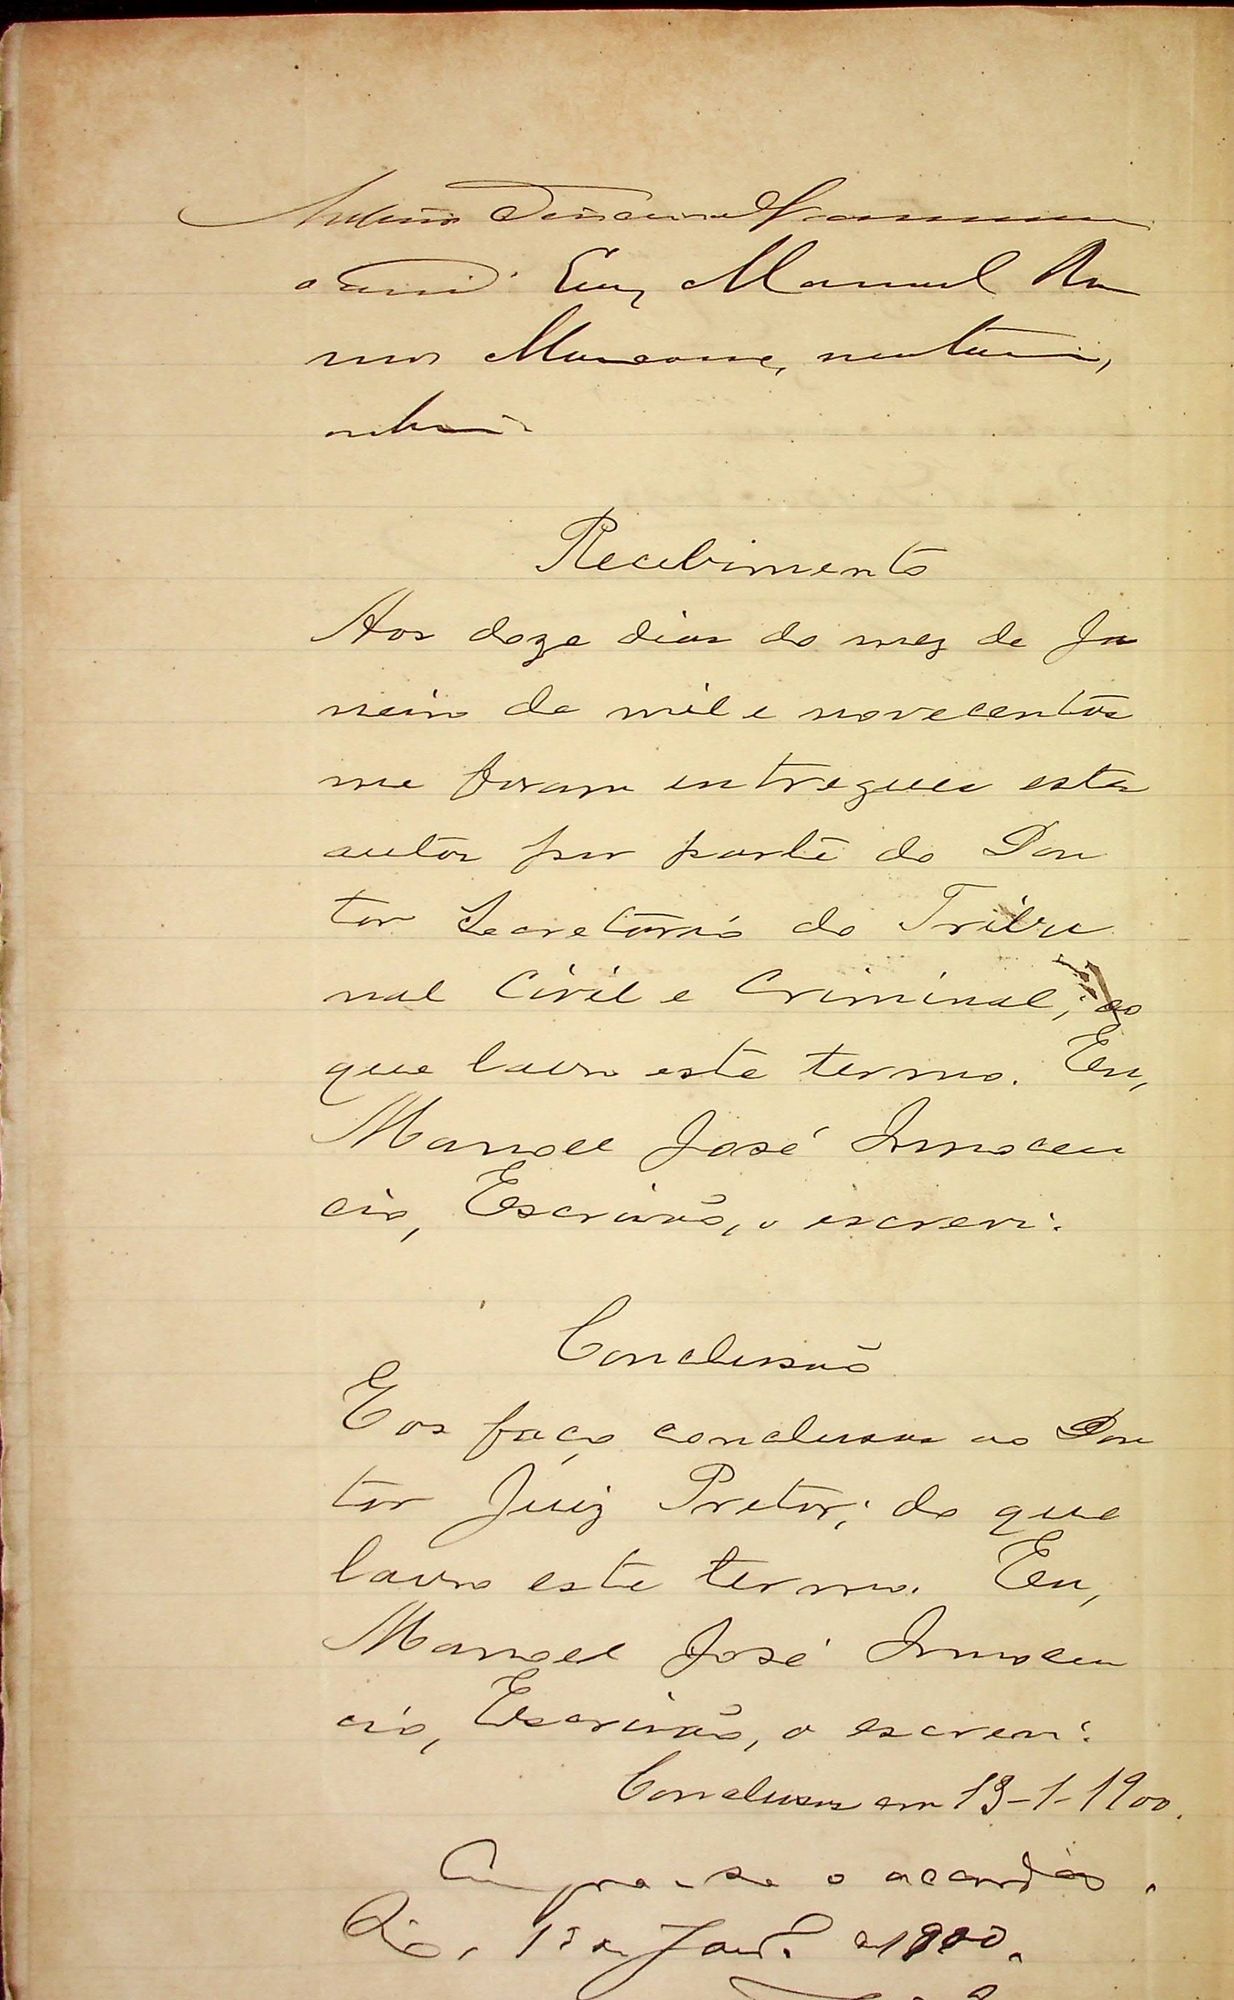 Eu, Manuel Ra
mos
Recebimento
Aos doze dias do mez de Ja
neiro de mil e novecentos
me foram entregues estes
autos por parte do Dou
tor Secretario do Tribu
nal Civil e Criminal; do
que lavro este termo. Eu,
Manoel José Innocen
cio, Escrivão, o escrevi.
Conclusão
E os faço conclusos ao Dou
tor Juiz Pretor; do que
lavro este termo. Eu,
Manoel José Innocen
cio, Escrivão, o escrevi.
Conclusos em 13-1-1900.
Cumpra-se o accordão.
Rio, Jan.º 1900.